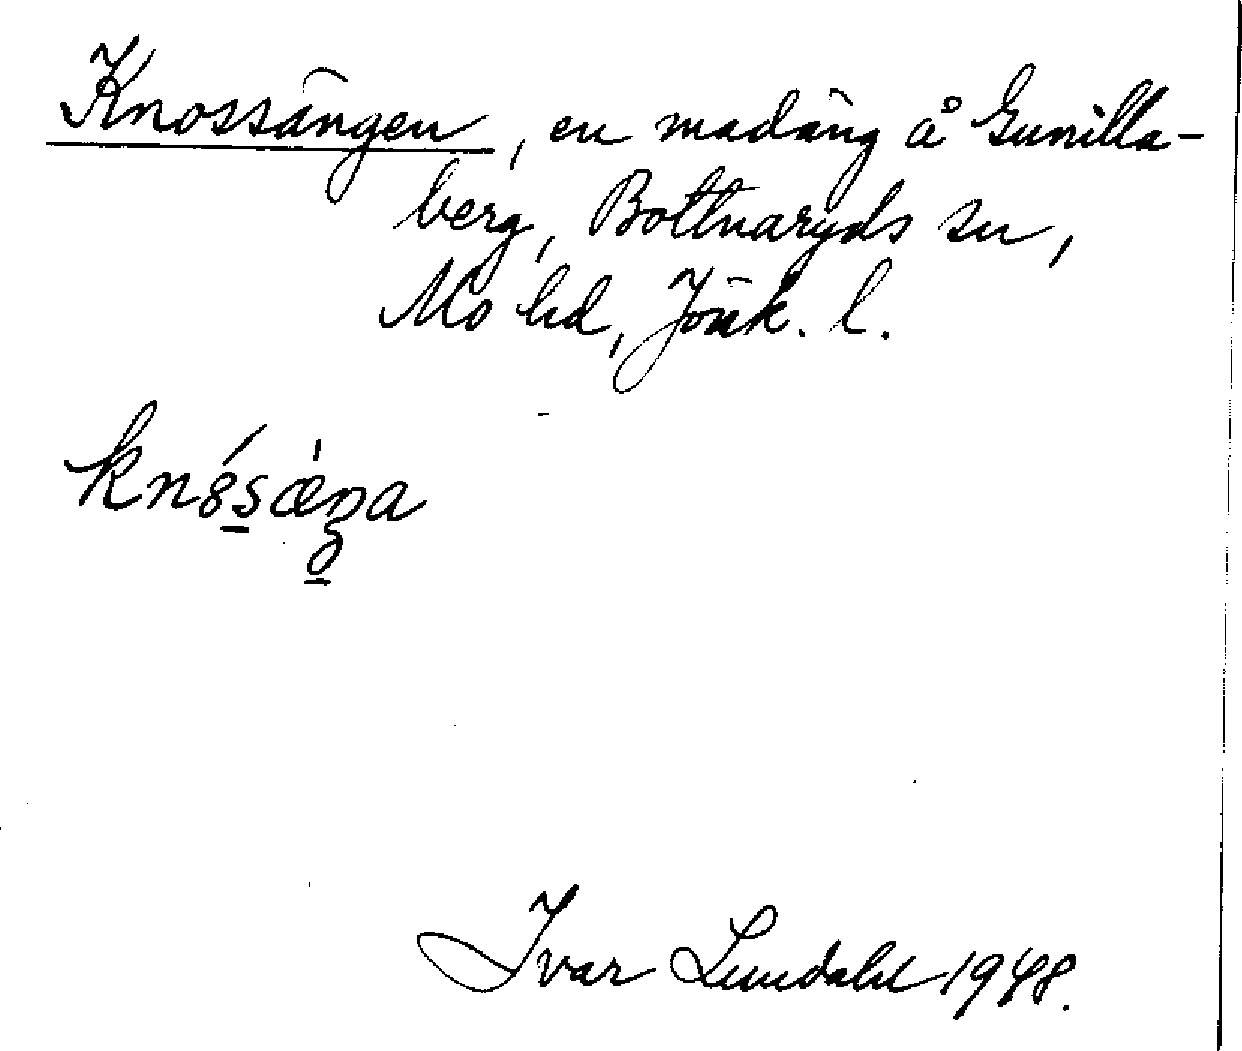 Knossängen, en madäng å Gunilla-
berg, Bottnaryds sn,
Mo hd, Jönk. l.
Ivar Lundahl 1948.